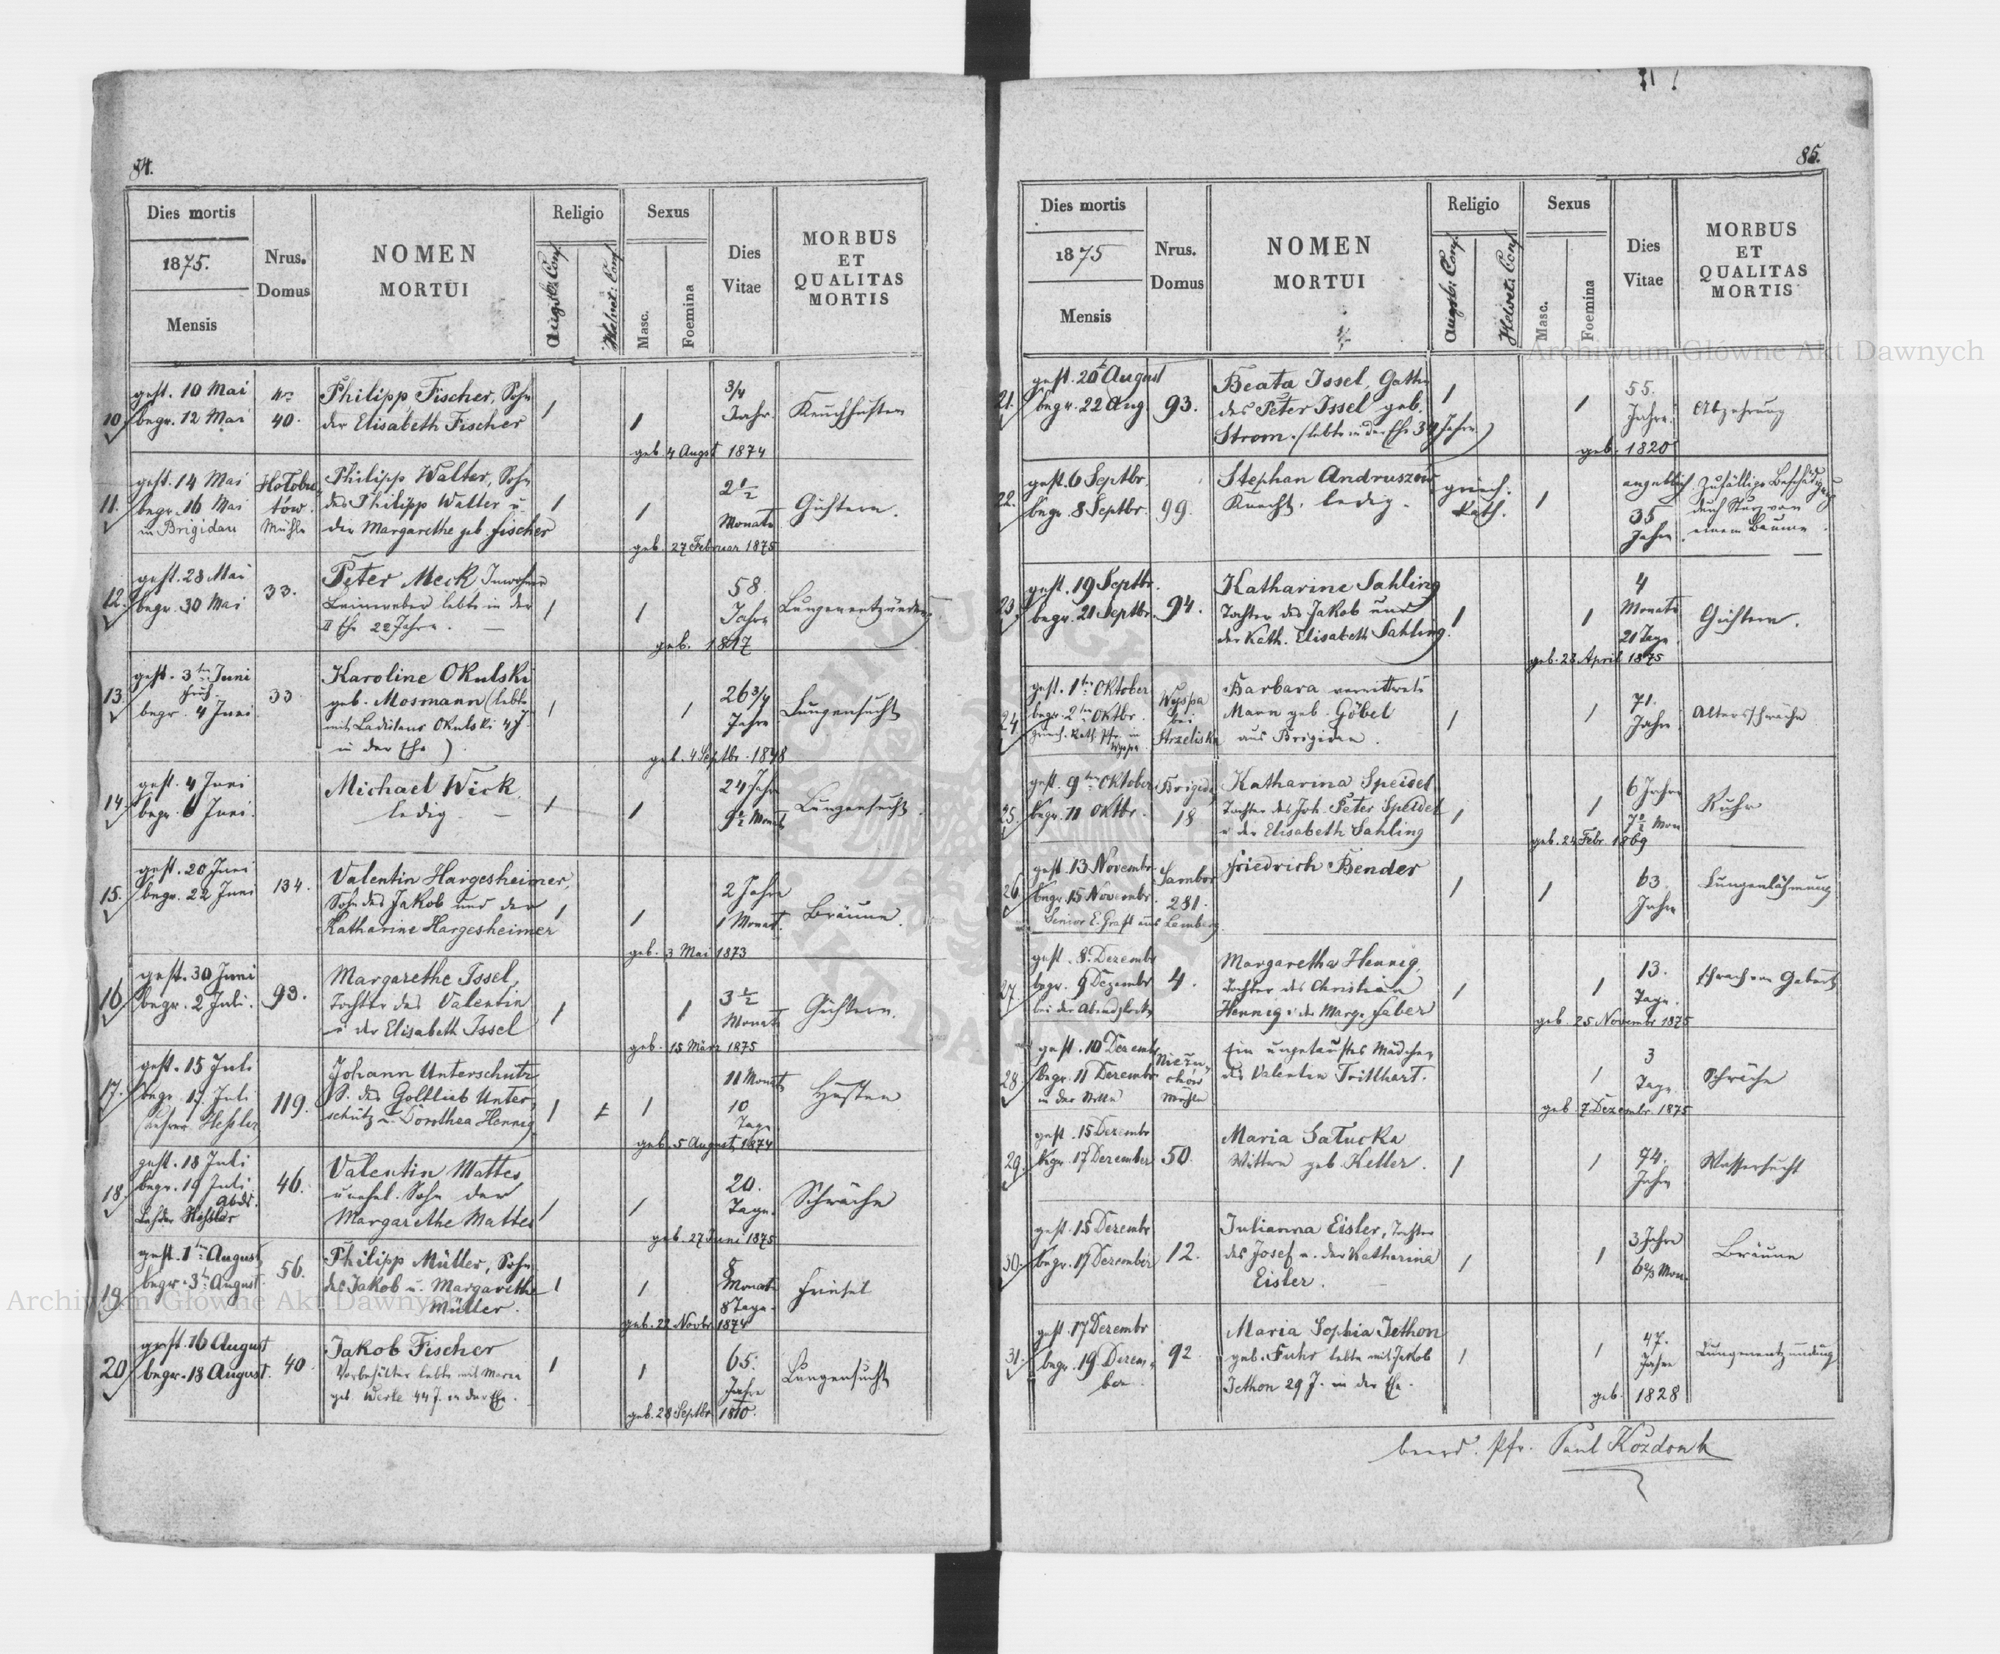 84.
Dies mortis
1875.
Mensis
Nrus.
Domus
NOMEN
MORTUI
Religio
Augsb: Conf.
Helvet: Conf.
Sexus
Masc.
Foemina
Dies
Vitae
MORBUS
ET
QUALITAS
MORTIS
10. gest. 10 Mai
begr. 12 Mai
40.
Philipp Fischer, Sohn
der Elisabeth Fischer
3/4
Jahr.
geb. 4 Augst 1874
Keuchhusten
11. gest. 14 Mai
begr. 16 Mai
in Brigidau
Hołobu-
tów.
Mühle
Philipp Walter, Sohn
des Philipp Walter u.
der Margarethe geb. Fischer
2 1/2
Monate
geb. 27 Februar 1875
Gichtern.
12. gest. 28 Mai
begr. 30 Mai
33.
Peter Meck Inwohner
Leinweber lebte in der
II Ehe 22 Jahre. —
58.
Jahre
geb. 1817
Lungenentzündung.
13. gest. 3ten Juni
früh
begr. 4 Juni
33
Karoline Okulski
geb. Mosmann (lebte
mit Ladislaus Okulski 4 J.
in der Ehe)
26 3/4
Jahre
geb. 4 Septbr. 1848
Lungensucht
14. gest. 4 Juni
begr. 6 Juni.
Michael Wick.
ledig. —
24 Jahre
9 1/2 Monate
Lungensucht.
15. gest. 20 Juni
begr. 22 Juni
134.
Valentin Hargesheimer,
Sohn des Jakob und der
Katharine Hargesheimer
2 Jahre
1 Monat.
geb. 3 Mai 1873
Bräune.
16. gest. 30 Juni
begr. 2 Juli.
93.
Margarethe Issel,
Tochter des Valentin
u. der Elisabeth Issel
3 1/2
Monate
geb. 15 März 1875
Gichtern.
17. gest. 15 Juli
begr. 17. Juli
Lehrer Hessler
119.
Johann Unterschütz
S. des Gottlieb Unter-
schütz u. Dorothea Hennig.
11 Monate
10
Tage.
geb. 5 August 1874
Husten
18. gest. 18 Juli
begr. 19 Juli
Abds.
46.
Valentin Mattes
unehel. Sohn der
Margarethe Mattes
20.
Tage.
geb. 27 Juni 1875
Schwäche
19. gest. 1ten August
begr. 3ten August.
56.
Philipp Müller, Sohn
des Jakob u. Margarethe
Müller.
8
Monate
8 Tage.
geb. 22 Novbr. 1874
Friesel
20. gest. 16 August
begr. 18 August.
40.
Jakob Fischer
Vorbehälter lebte mit Maria
geb. Werle 44 J. in der Ehe.
65.
Jahre
geb. 28 Septbr. 1810.
Lungensucht
85.
Dies mortis
1875
Mensis
Nrus.
Domus
NOMEN
MORTUI
Religio
Augsb: Conf.
Helvet: Conf.
Sexus
Masc.
Foemina
Dies
Vitae
MORBUS
ET
QUALITAS
MORTIS
21. gest. 20t August
begr. 22 Aug.
93.
Beata Issel, Gattin
des Peter Issel geb.
Strom. (lebte in der Ehe 34 Jahre)
55.
Jahre.
geb. 1820
Abzehrung
22. gest. 6 Septbr.
begr. 8 Septbr.
99.
Stephan Andruszów
Knecht, ledig.
griech.
kath.
angeblich
35
Jahre
Zufällige Beschädigung
durch Sturz von
einem Baume.
23. gest. 19 Septbr.
begr. 21 Septbr.
94.
Katharine Sahling
Tochter des Jakob und
der Kath. Elisabeth Sahling.
4
Monate
21 Tage
geb. 28 April 1875
Gichtern.
24. gest. 1ten Oktober
begr. 2ten Oktbr.
Wyspa
bei
Strzeliska
Barbara verwittwete
Mann geb. Göbel
aus Brigidau.
71.
Jahre.
Altersschwäche
25. gest. 9ten Oktober
begr. 11 Oktbr.
Brigidau
18
Katharina Speidel
Tochter des Joh. Peter Speidel
u. der Elisabeth Sahling
6 Jahre
7 1/2 Mon.
geb. 24 Febr. 1869
Ruhr
26. gest. 13 Novembr.
begr. 15 Novembr.
Senior E. Graff aus Lemberg.
Sambor
281.
Friedrich Bender
63.
Jahre
Lungenlähmung
27. gest. 8. Dezembr
begr. 9 Dezembr
bei der Abendglocke
4.
Margaretha Hennig,
Tochter des Christian
Hennig u. der Marg. Faber
13.
Tage.
geb. 25 Novembr 1875
schwach von Geburt
28. gest. 10 Dezembr
begr. 11 Dezembr
Nieżu-
chów
Mühle
Ein ungetauftes Mädchen
des Valentin Trillhart.
3
Tage.
geb. 7 Dezembr. 1875
Schwäche
29. gest. 15 Dezembr
begr. 17 Dezember
50.
Maria Satucka
Wittwe geb. Keller.
74.
Jahre
Wassersucht
30. gest. 15 Dezembr
begr. 17 Dezember
12.
Julianna Eisler, Tochter
des Josef u. der Katharina
Eisler.
3 Jahre
6 2/3 Mon.
Bräune
31. gest. 17 Dezembr
begr. 19 Dezem-
ber.
92.
Maria Sophia Jethon
geb. Fuhr lebte mit Jakob
Jethon 29 J. in der Ehe.
47.
Jahre
geb. 1828
Lungenentzündung
beerd. Pfr. Paul Kozdonk
Archiwum Główne Akt Dawnych
Archiwum Główne Akt Dawnych